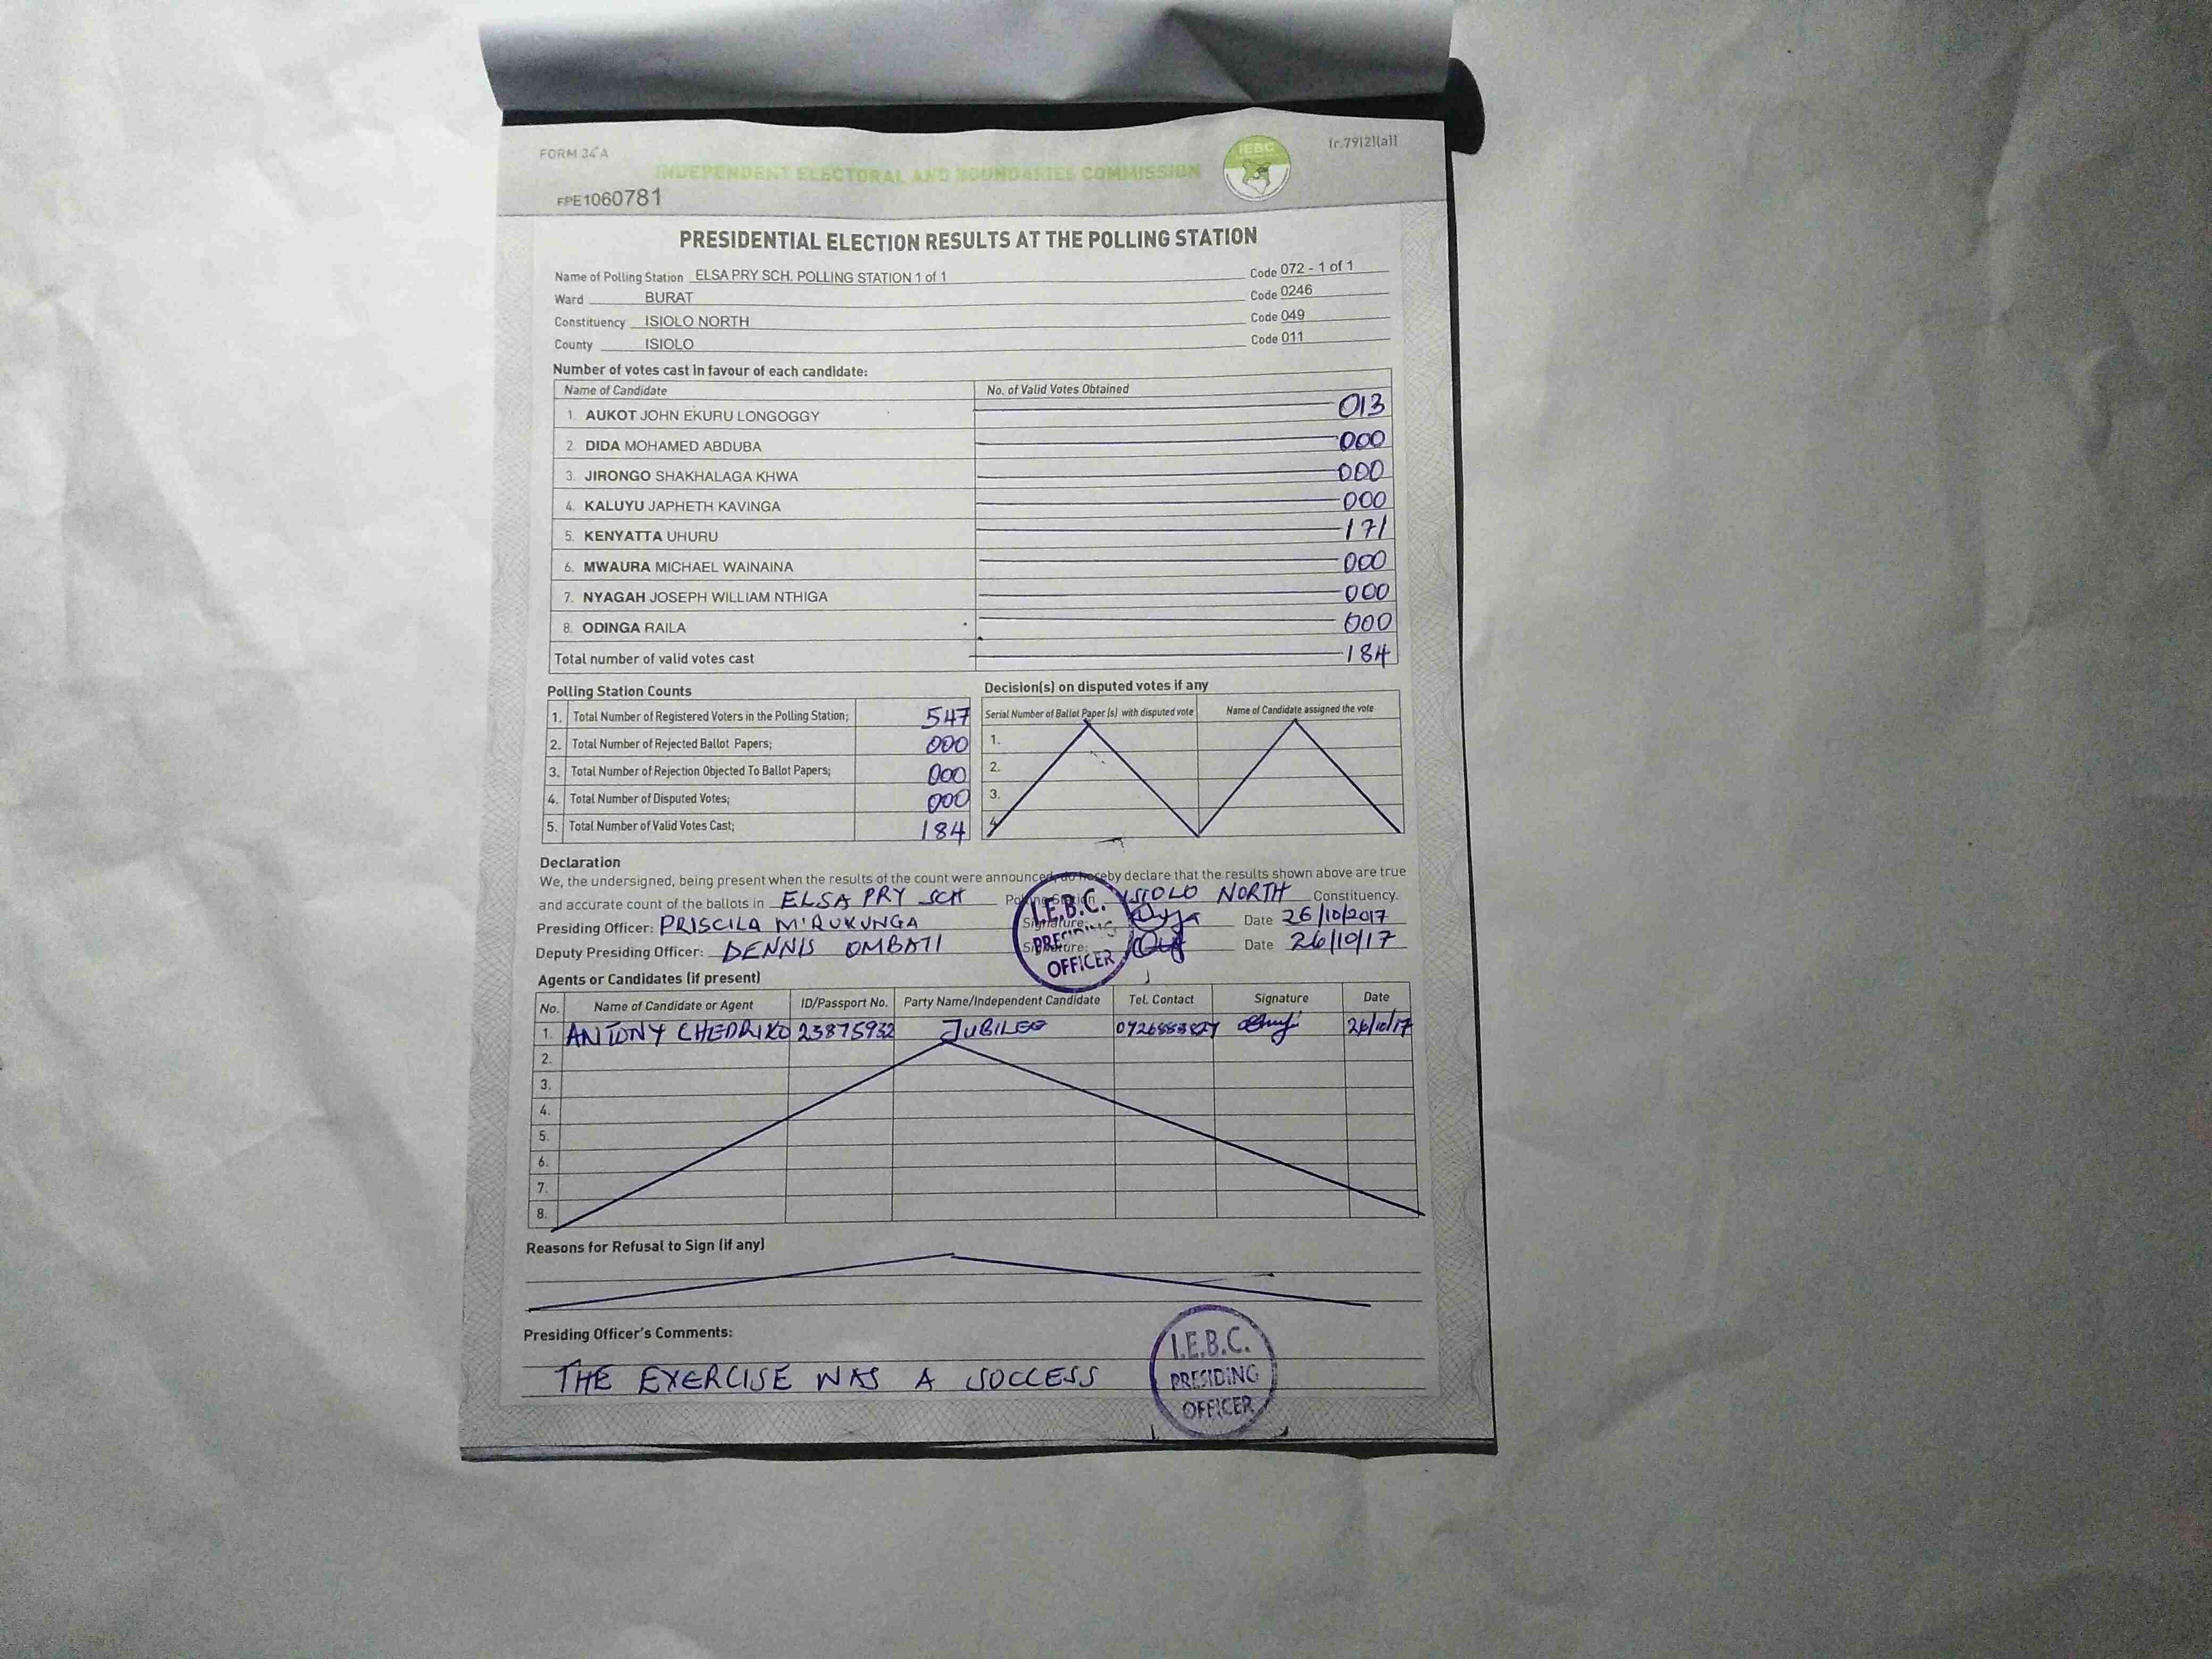 FORM 34 A
(r.79(2)(a))
INDEPENDENT ELECTORAL AND BOUNDARIES COMMISSION
IEBC
FPE1060781
PRESIDENTIAL ELECTION RESULTS AT THE POLLING STATION
Name of Polling Station ELSA PRY SCH. POLLING STATION 1 of 1 Code 072 - 1 of 1
Ward BURAT Code 0246
Constituency ISIOLO NORTH Code 049
County ISIOLO Code 011
Number of votes cast in favour of each candidate:
Name of Candidate No. of Valid Votes Obtained
1. AUKOT JOHN EKURU LONGOGGY 013
2. DIDA MOHAMED ABDUBA 000
3. JIRONGO SHAKHALAGA KHWA 000
4. KALUYU JAPHETH KAVINGA 000
5. KENYATTA UHURU 171
6. MWAURA MICHAEL WAINAINA 000
7. NYAGAH JOSEPH WILLIAM NTHIGA 000
8. ODINGA RAILA 000
Total number of valid votes cast 184
Polling Station Counts
1. Total Number of Registered Voters in the Polling Station; 547
2. Total Number of Rejected Ballot Papers; 000
3. Total Number of Rejection Objected To Ballot Papers; 000
4. Total Number of Disputed Votes; 000
5. Total Number of Valid Votes Cast; 184
Decision(s) on disputed votes if any
Serial Number of Ballot Paper (s) with disputed vote Name of Candidate assigned the vote
1.
2.
3.
4.
Declaration
We, the undersigned, being present when the results of the count were announced, do hereby declare that the results shown above are true
and accurate count of the ballots in ELSA PRY SCH Polling Station ISIOLO NORTH Constituency.
Presiding Officer: PRISCILA M'RUKUNGA Signature: Date 26/10/2017
Deputy Presiding Officer: DENNIS OMBATI Signature: Date 26/10/17
I.E.B.C.
PRESIDING
OFFICER
Agents or Candidates (if present)
No. Name of Candidate or Agent ID/Passport No. Party Name/Independent Candidate Tel. Contact Signature Date
1. ANTONY 23875932 JUBILEE 26/10/17
2.
3.
4.
5.
6.
7.
8.
Reasons for Refusal to Sign (if any)
Presiding Officer's Comments:
THE EXERCISE WAS A SUCCESS
I.E.B.C.
PRESIDING
OFFICER